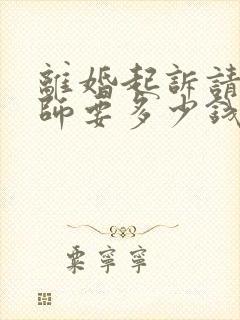 離婚起訴請
師要多少錢
粟寧寧